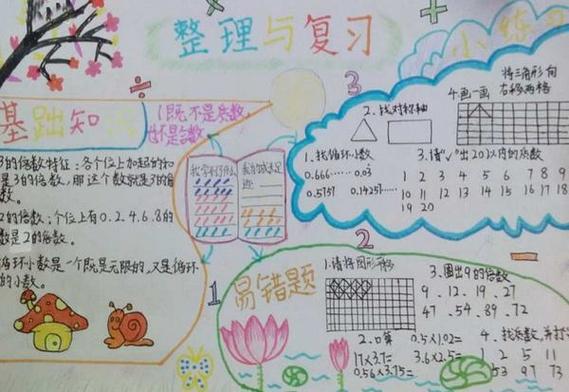 整理与复习
小练习
基础知识
1既不是质数,
也不是合数
3的倍数特征:各个位上加起的和
是3的倍数,那这个数就是3的倍
数。
2的倍数:个位上有0.2.4.6.8的
数是2的倍数。
循环小数是一个既是无限的,又是循环
的小数。
我学到了什么
我的成长足
迹:
1
易错题
2
1.请将图形平移
2.口算 0.5×1.02=
17×3.7= 3.6×2.5=
0.56×3.75=
3.圈出9的倍数
9.12.19.27
47.54.89.72
4.找质数,并打
1 2 5 11
53 97 73
3
1.找循环小数
0.666…… 0.03
0.5757 0.1425……
2.找对称轴
3.请"√"出20以内的质数
1 2 3 4 5 6 7 8 9
10 11 12 13 14 15 16 17 18
19 20
4.画一画
将三角形向
右移两格